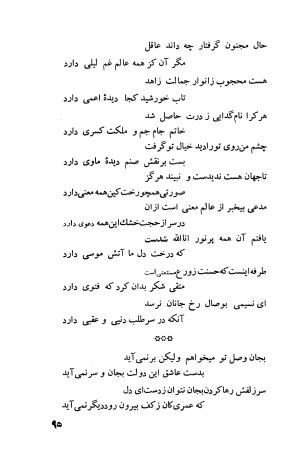 حال مجنون گرفتار چه داند عاقل
مگر آن کز همه عالم غم لیلی دارد
هست محجوب زانوار جمالت زاهد
تاب خورشید کجا دیدهٔ اعمی دارد
هر کرا نام گدایی ز درت حاصل شد
خاتم جام جم و ملکت کسری دارد
چشم من روی تو را دید خیال تو گرفت
بست بر نقش صنم دیدهٔ ماوی دارد
تا جهان هست ندیدست و نبیند هرگز
صورتی همچو رخت کین همه معنی دارد
مدعی بیخبر از عالم معنی است از آن
در سر از حجت خشک این همه دعوی دارد
یافتم آن همه پرنور انا الله شدست
که درخت دل ما آتش موسی دارد
طرفه اینست که حسنت زورع مستغنی است
متقی شکر بدان کرد که فتوی دارد
ای نسیمی بوصال رخ جانان نرسد
آنکه در سر طلب دنیی و عقبی دارد
***
بجان وصل تو میخواهم ولیکن بر نمی آید
بدست عاشق این دولت بجان و سر نمی آید
سر زلفش رها کردن بجان نتوان ز دست ای دل
که عمری کان ز کف بیرون رود دیگر نمی آید
۹۵